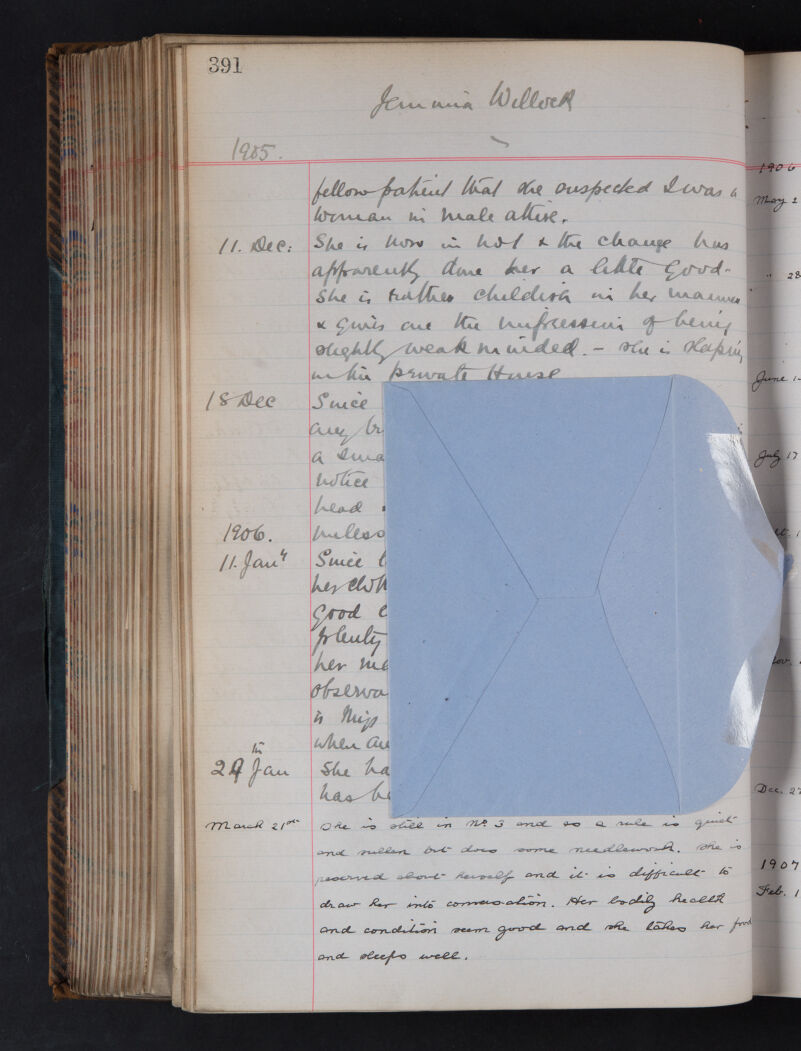 391
Jemmima Willock
1905.
fellow patient that she suspected I was a
woman in male attire.
11. Dec: She is now in No 1 & the change has
apparently done her a little good -
She is rather childish in her manner
& gives one the impression of being
slightly weak minded. - She is sleeping
in the private House
18 Dec Since
any br
a sma
notice
head
1906. unless
11. Jany Since
her cloth
Good
plenty
her me
observa
is Miss
when
29th Jan She ha
has be
March 21st She is still in No. 3 and as a rule is quiet
and sullen but does some needlework. She is
reserved about herself and it is difficult to
draw her into conversation. Her bodily health
and condition seem good and she takes her food
and sleeps well.
1906
May 2
" 28
June 1
July 17
Nov.
Dec. 27
1907
Feb. 1